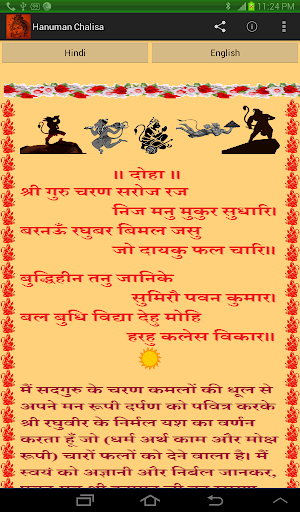 11:24 PM
Hanuman Chalisa
Hindi
English
॥ दोहा ॥
श्री गुरु चरण सरोज रज
निज मनु मुकुर सुधारि।
बरनऊँ रघुबर बिमल जसु
जो दायकु फल चारि।।
बुद्धिहीन तनु जानिके
सुमिरौ पवन कुमार।
बल बुधि विद्या देहु मोहि
हरहु कलेस विकार॥
मैं सदगुरु के चरण कमलों की धूल से
अपने मन रूपी दर्पण को पवित्र करके
श्री रघुवीर के निर्मल यश का वर्णन
करता हूँ जो (धर्म अर्थ काम और मोक्ष
रूपी) चारों फलों को देने वाला है। मैं
स्वयं को अज्ञानी और निर्बल जानकर,